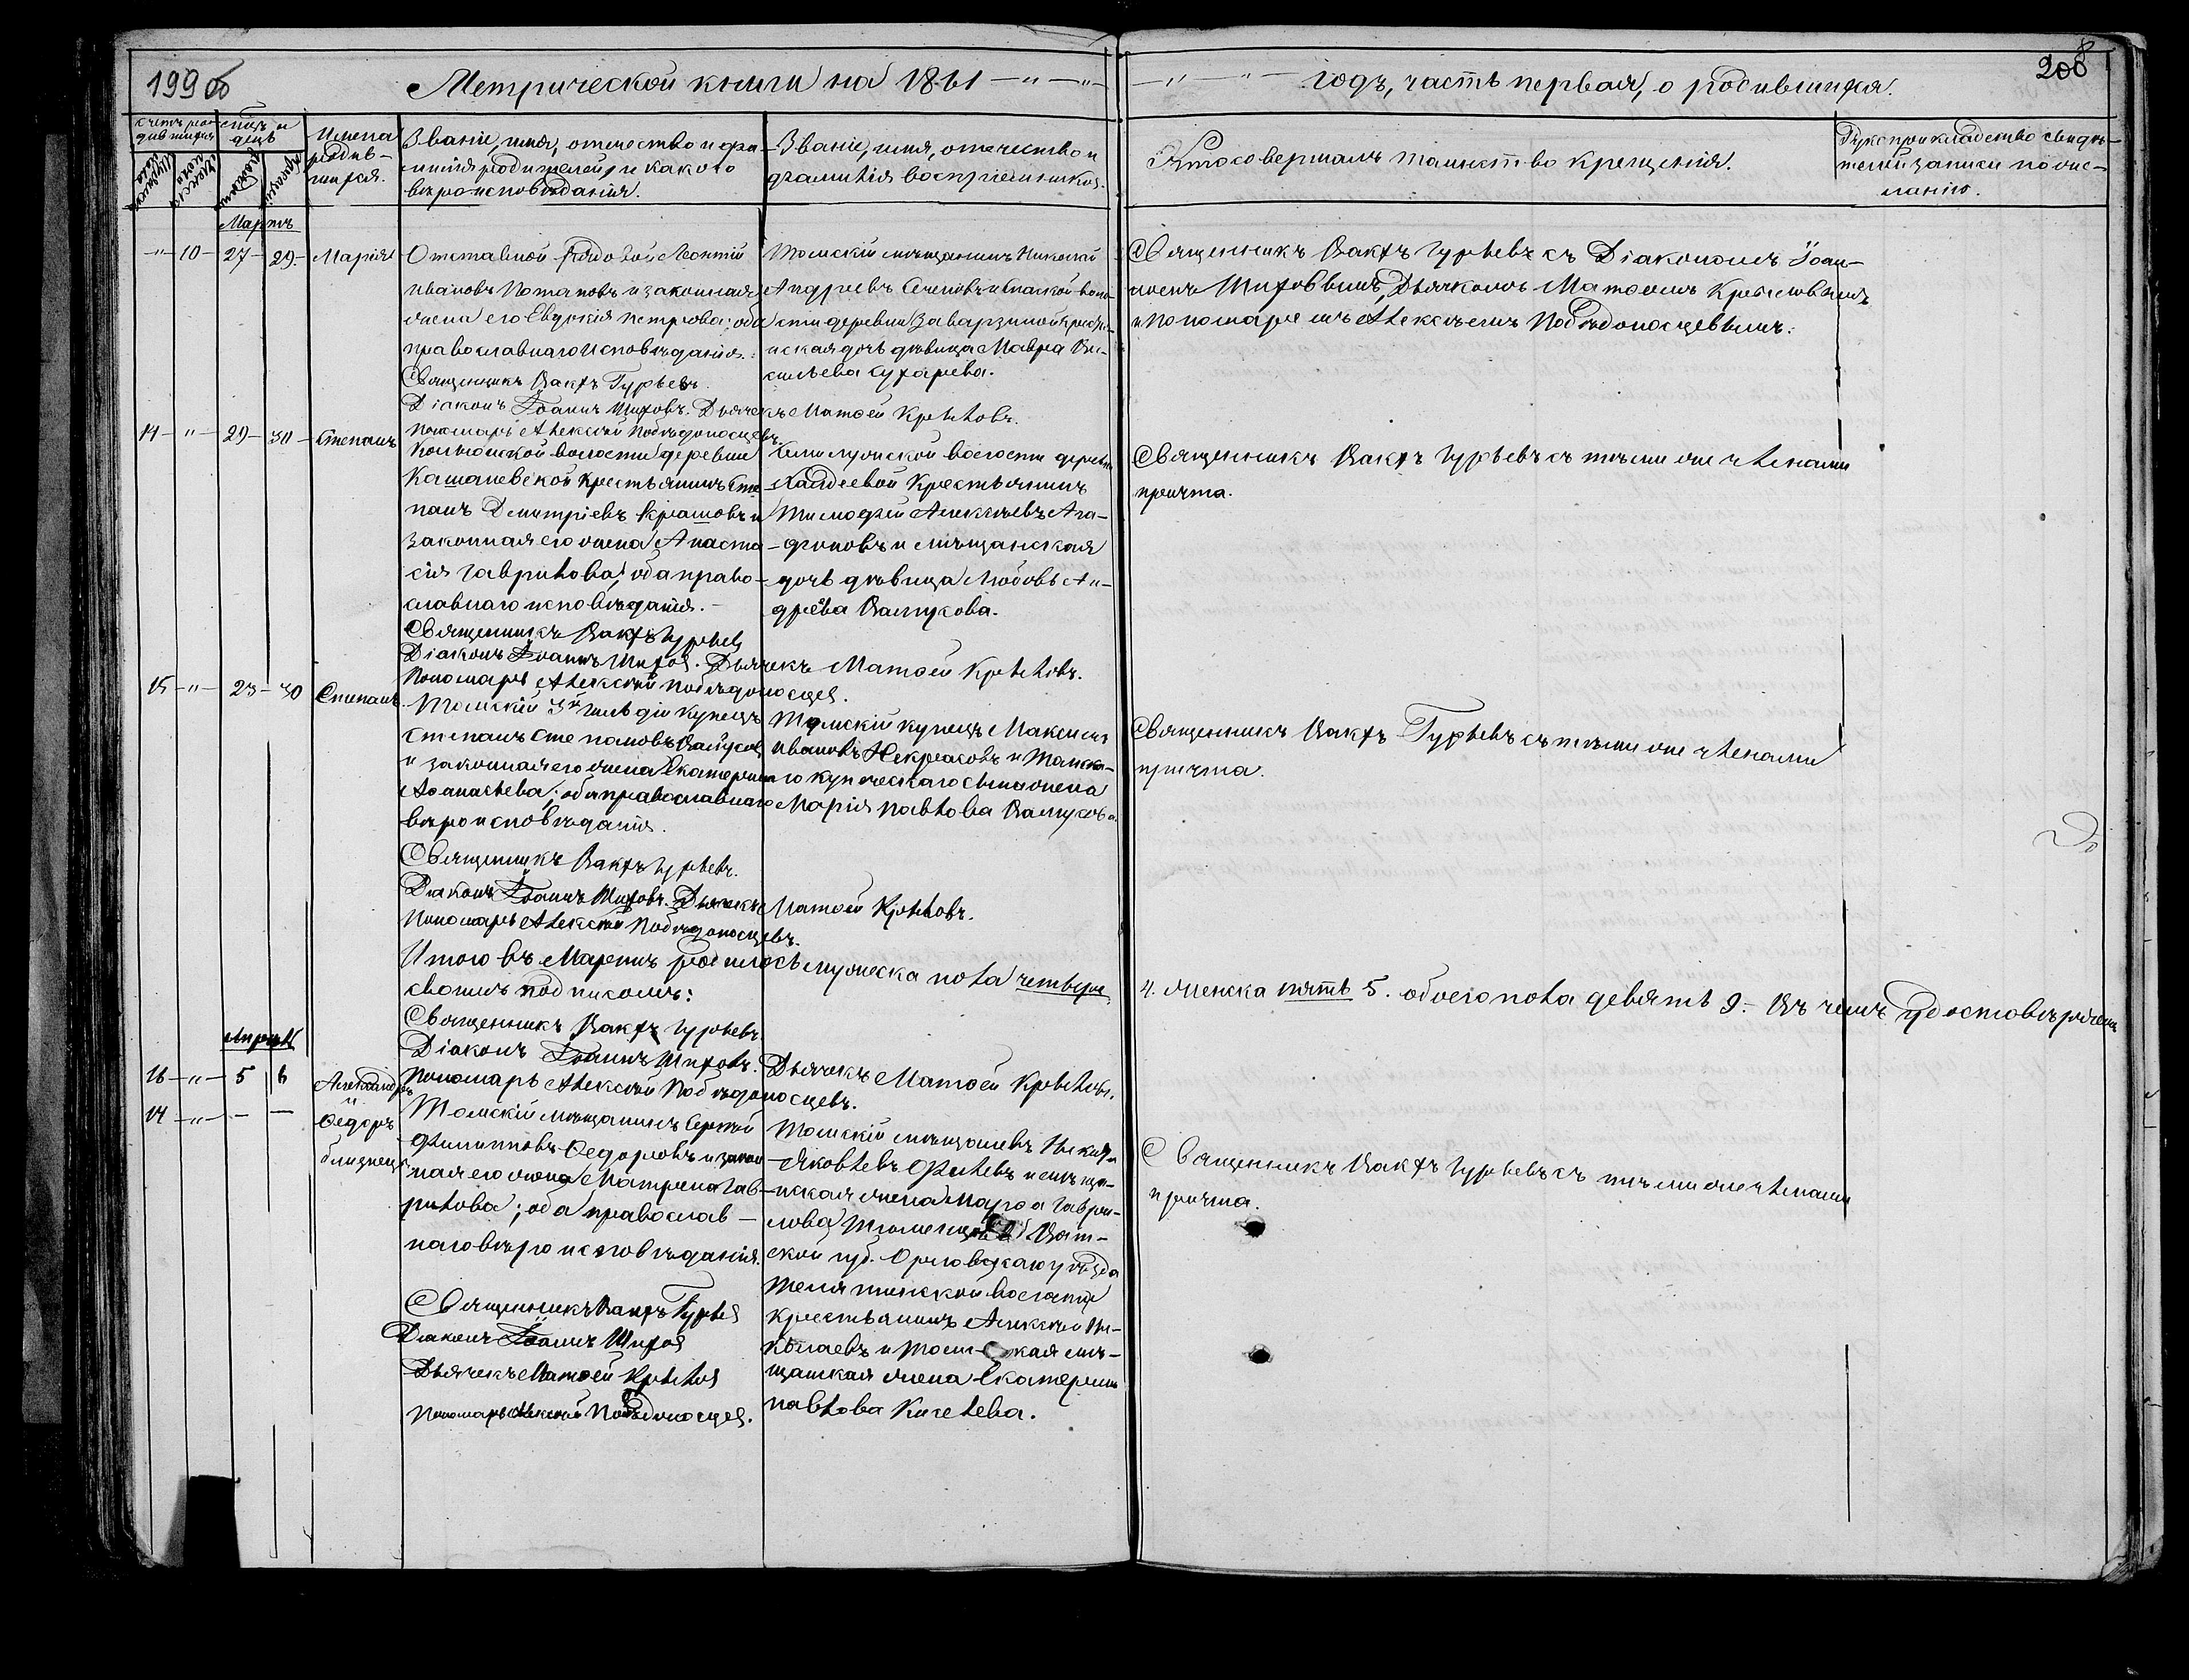 199 об
208
Метрической книги на 1861 —"—"—
—"—"— годъ, часть первая, о родившихся.
Счетъ родившихся
Мѣсяцъ и день
Имена родив-
шихся.
Званіе, имя, отчество и фа-
милія родителей, и какого
вѣроисповѣданія.
Званіе, имя, отчество и
фамилія воспріемниковъ.
Кто совершалъ таинство крещенія.
Рукоприкладство свидѣ-
телей записи по же-
ланію.
Мартъ
" — 10 — 27 — 29. Марія
Отставной рядовой Леонтій
Ивановъ Потаповъ и законная
жена его Евдокія Петрова; оба
православнаго исповѣданія.
Священникъ Вакхъ Гурьевъ.
Діаконъ Іоаннъ Шиховъ. Дьячекъ Матѳей Крыловъ.
Пономарь Алексѣй Побѣдоносцевъ.
Томскій мѣщанинъ Николай
Андреевъ и Спасской воло-
сти деревни Заварзиной крестья-
нская дочь дѣвица Мавра Ва-
сильева Сухарева.
Священникъ Вакхъ Гурьевъ съ Діакономъ Іоан-
номъ Шиховымъ, Дьячкомъ Матѳеемъ Крыловымъ
и Пономаремъ Алексѣемъ Побѣдоносцевымъ.
14 — " — 29 — 30 — Степанъ
волости деревни
крестьянинъ Сте-
панъ Дмитріевъ и
законная его жена Анаста-
сія Гаврилова; оба право-
славнаго исповѣданія. —
Священникъ Вакхъ Гурьевъ
Діаконъ Іоаннъ Шиховъ. Дьячекъ Матѳей Крыловъ.
Пономарь Алексѣй Побѣдоносцевъ.
Семилужской волости деревни
крестьянинъ
Тимофей Алексѣевъ Ага-
фоновъ и мѣщанская
дочь дѣвица Любовь Ан-
древа Валгусова.
Священникъ Вакхъ Гурьевъ съ тѣми же членами
причта.
15 — " — 23 — 30 Степанъ.
Томскій 3й гильдіи купецъ
Степанъ Степановъ Валгусовъ
и законная его жена Екатерина
Аѳанасьева; оба православнаго
вѣроисповѣданія.
Священникъ Вакхъ Гурьевъ.
Діаконъ Іоаннъ Шиховъ. Дьячекъ Матѳей Крыловъ.
Пономарь Алексѣй Побѣдоносцевъ.
Томскій купецъ Максимъ
Ивановъ Некрасовъ и Томска-
го купеческаго сына жена
Марія Павлова Валгусова.
Священникъ Вакхъ Гурьевъ съ тѣми же членами
причта.
Итого въ Мартѣ родилось мужеска пола четверо 4. женска пять 5. обоего пола девять 9. — Въ чемъ удостовѣряемъ
своимъ подписомъ:
Священникъ Вакхъ Гурьевъ.
Діаконъ Іоаннъ Шиховъ. Дьячекъ Матѳей Крыловъ.
Пономарь Алексѣй Побѣдоносцевъ.
Апрѣль
16 — " — 5 6 Александръ
и
17 — " — — — Ѳедоръ
близнецы
Томскій мѣщанинъ Сергѣй
Филипповъ Ѳедоровъ и закон-
ная его жена Матрена Гав-
рилова; оба православ-
наго вѣроисповѣданія.
Священникъ Вакхъ Гурьевъ
Діаконъ Іоаннъ Шиховъ
Дьячекъ Матѳей Крыловъ
Пономарь Алексѣй Побѣдоносцевъ.
Томскій мѣщанинъ
Яковлевъ и мѣща-
нская жена Марѳа Гаври-
лова Вят-
ской губ. Орловскаго уѣзда
волости
крестьянинъ Алексѣй Ни-
колаевъ и Томская мѣ-
щанская жена Екатерина
Павлова Киселева.
Священникъ Вакхъ Гурьевъ съ тѣми же членами
причта.